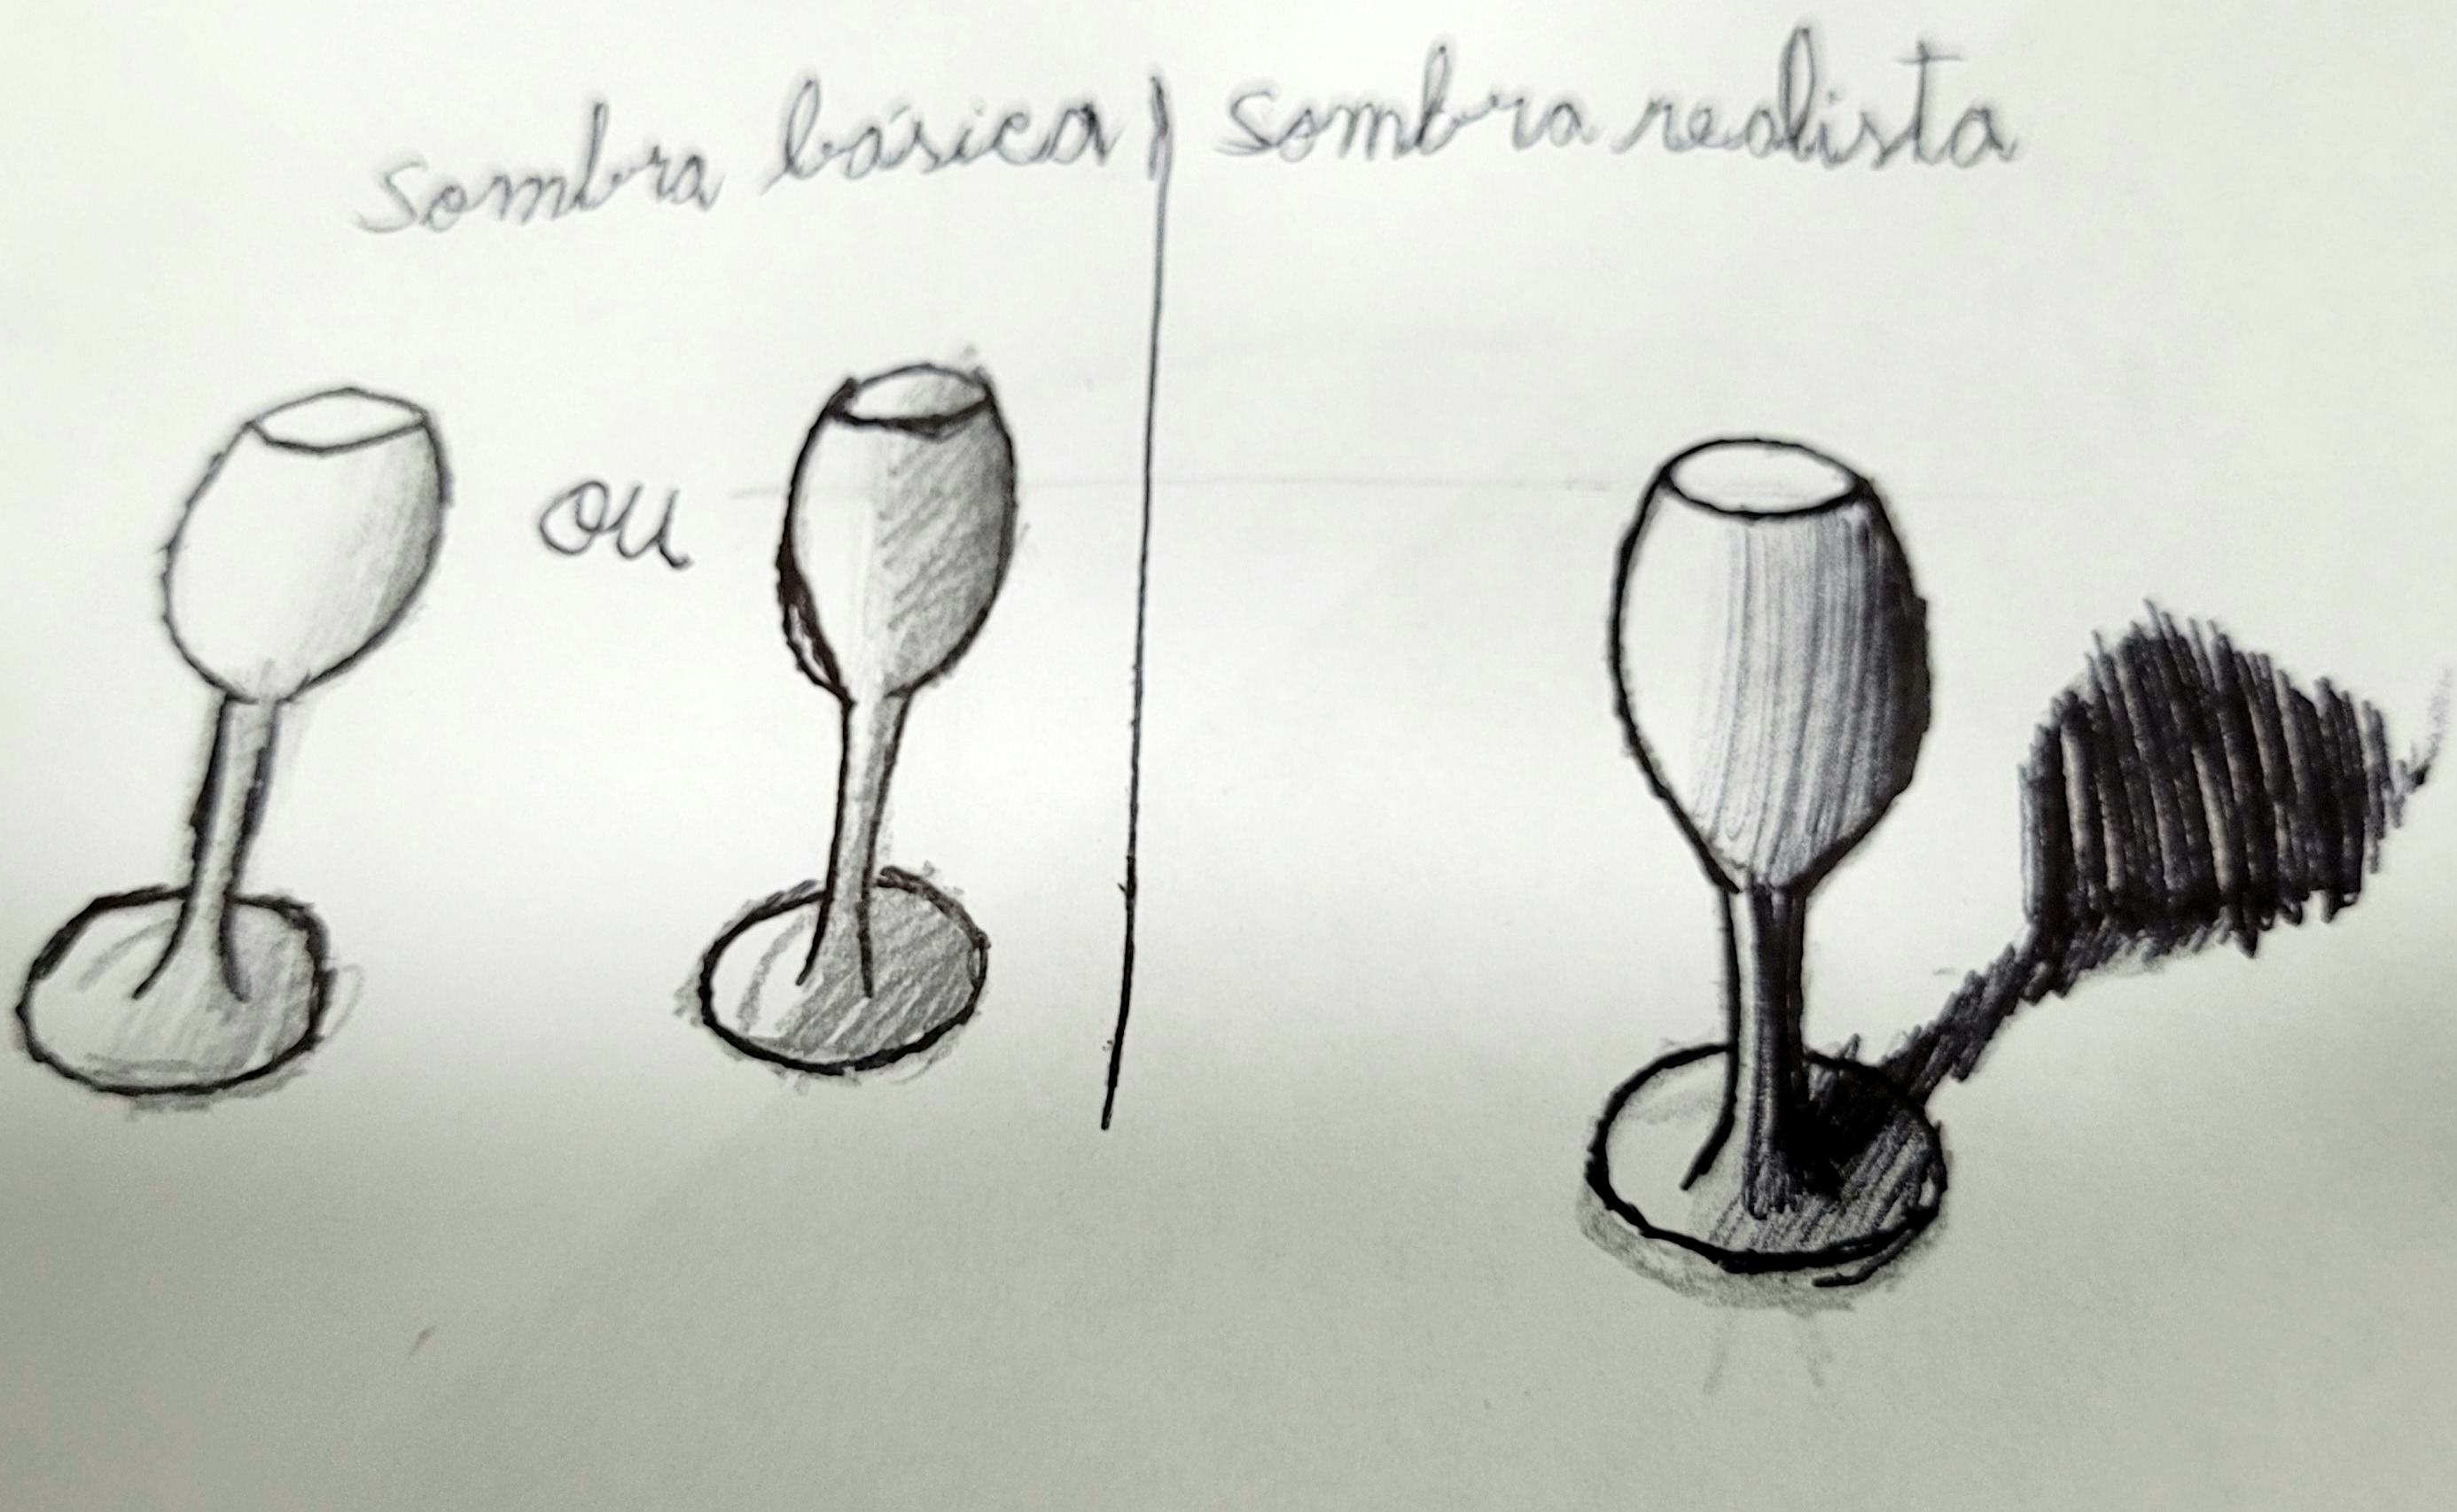 sombra básica | sombra realista
ou